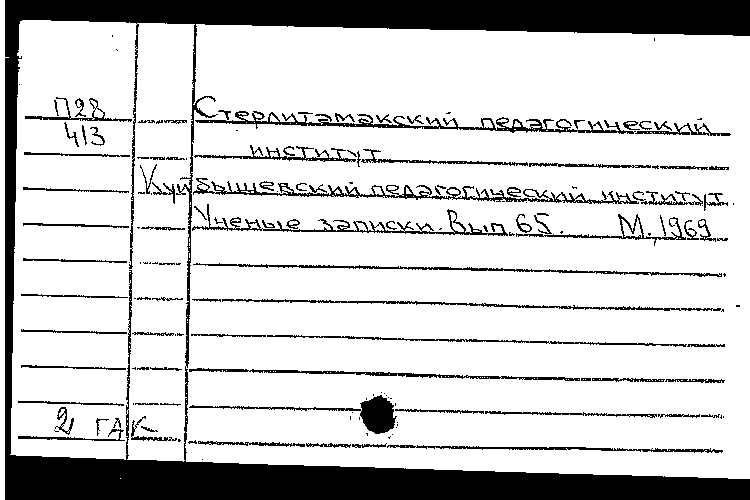 П28
413
Стерлитамакский педагогический
институт
Куйбышевский педагогический институт.
Ученые записки. Вып. 65. М., 1969
2 ГАК